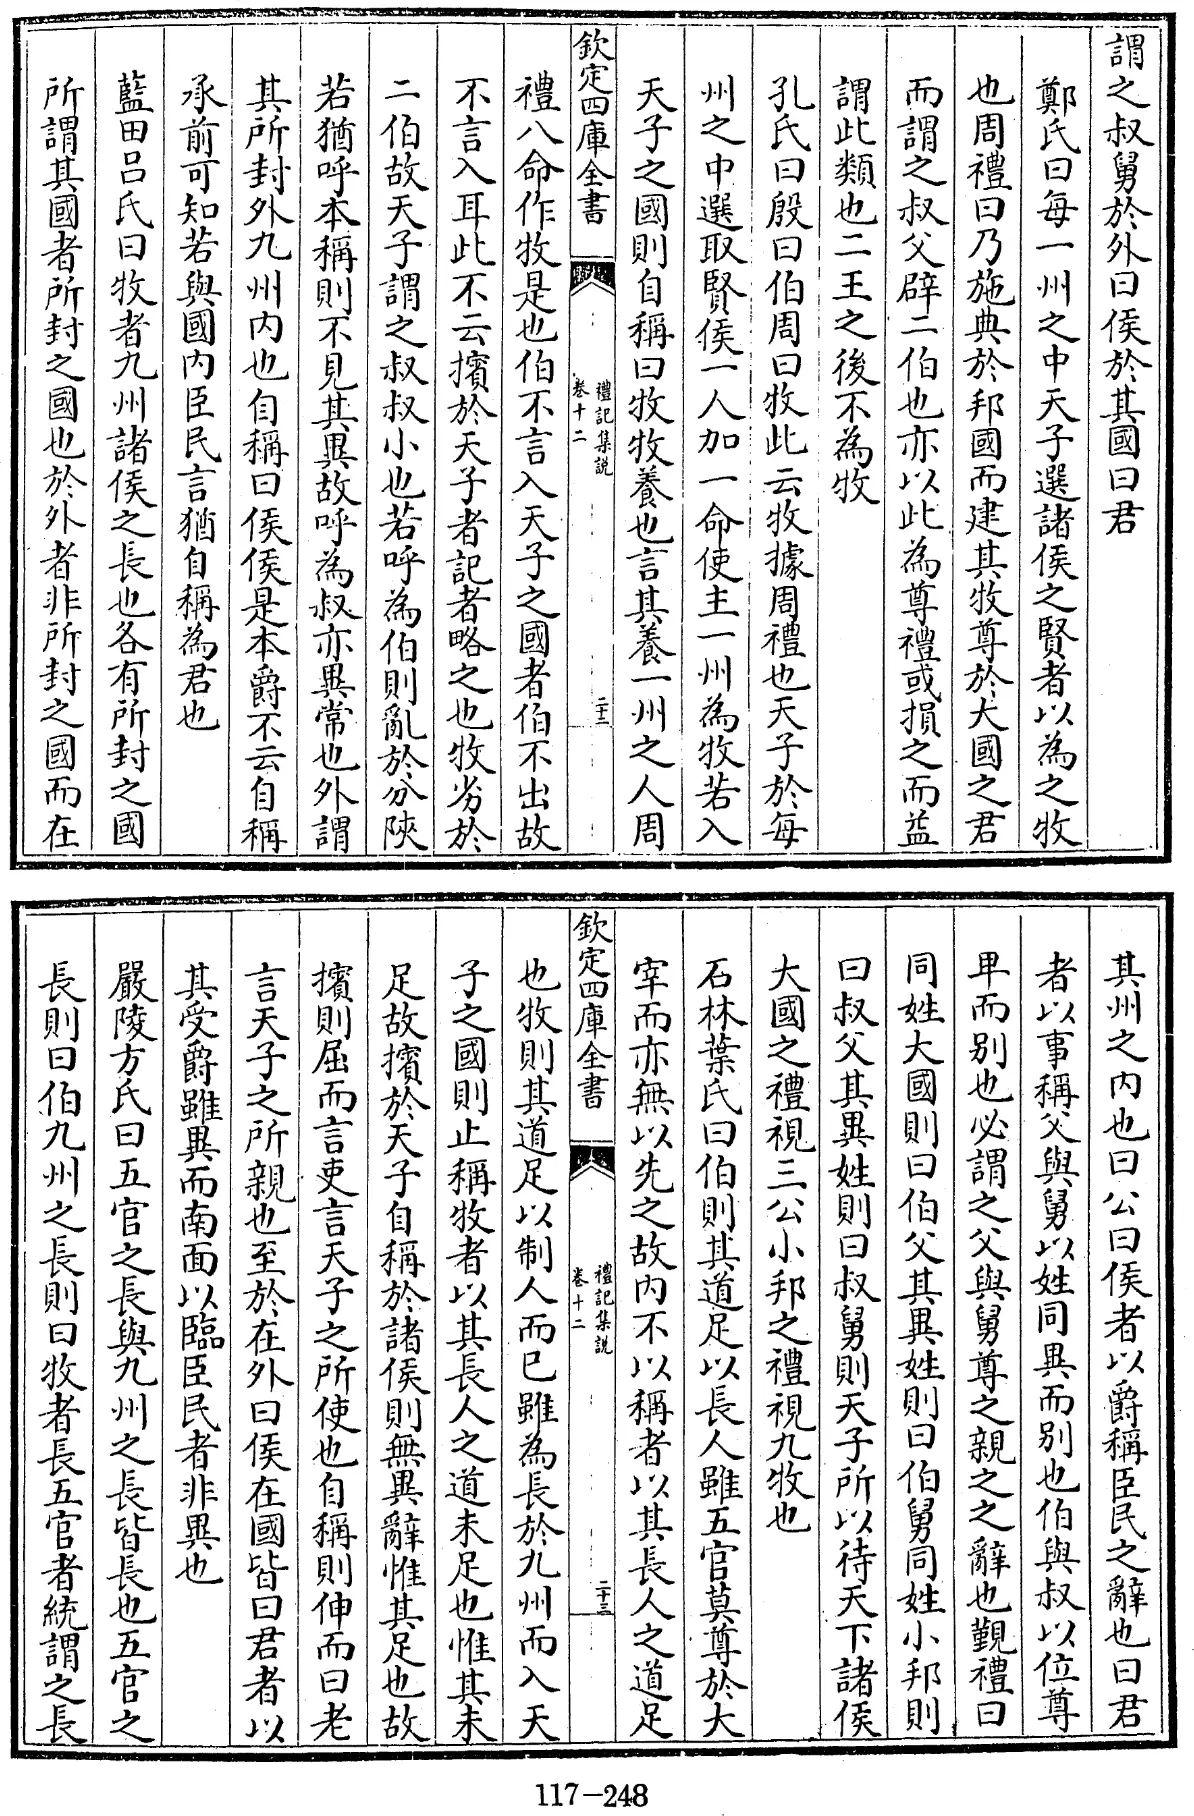 謂之叔舅於外曰侯於其國曰君
鄭氏曰每一州之中天子選諸侯之賢者以為之牧
也周禮曰乃施典於邦國而建其牧尊於大國之君
而謂之叔父辟二伯也亦以此為尊禮或損之而益
謂此類也二王之後不為牧
孔氏曰殷曰伯周曰牧此云牧據周禮也天子於每
州之中選取賢侯一人加一命使主一州為牧若入
天子之國則自稱曰牧牧養也言其養一州之人周
欽定四庫全書
禮記集說
卷十二
二十二
禮八命作牧是也伯不言入天子之國者伯不出故
不言入耳此不云擯於天子者記者略之也牧劣於
二伯故天子謂之叔叔小也若呼為伯則亂於分陝
若猶呼本稱則不見其異故呼為叔亦異常也外謂
其所封外九州内也自稱曰侯侯是本爵不云自稱
承前可知若與國内臣民言猶自稱為君也
藍田呂氏曰牧者九州諸侯之長也各有所封之國
所謂其國者所封之國也於外者非所封之國而在
其州之内也曰公曰侯者以爵稱臣民之辭也曰君
者以事稱父與舅以姓同異而别也伯與叔以位尊
卑而别也必謂之父與舅尊之親之之辭也覲禮曰
同姓大國則曰伯父其異姓則曰伯舅同姓小邦則
曰叔父其異姓則曰叔舅則天子所以待天下諸侯
大國之禮視三公小邦之禮視九牧也
石林葉氏曰伯則其道足以長人雖五官莫尊於大
宰而亦無以先之故内不以稱者以其長人之道足
欽定四庫全書
禮記集說
卷十二
二十三
也牧則其道足以制人而已雖為長於九州而入天
子之國則止稱牧者以其長人之道未足也惟其未
足故擯於天子自稱於諸侯則無異辭惟其足也故
擯則屈而言吏言天子之所使也自稱則伸而曰老
言天子之所親也至於在外曰侯在國皆曰君者以
其受爵雖異而南面以臨臣民者非異也
嚴陵方氏曰五官之長與九州之長皆長也五官之
長則曰伯九州之長則曰牧者長五官者統謂之長
117-248